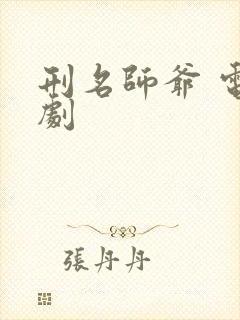 刑名師爺 電
劇
張丹丹